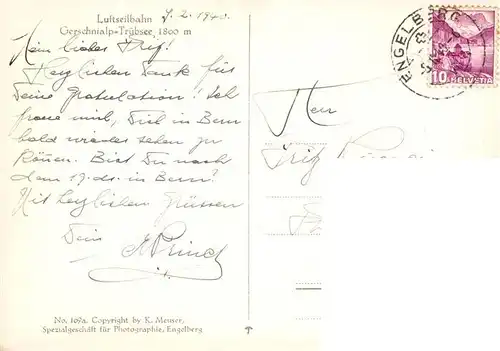 Luftseilbahn
Gerschnialp-Trübsee 1800 m
7.2.1940.
Mein lieber Fritz!
Herzlichen Dank für
Deine Gratulation! Ich
freue mich, Dich in Bern
bald wieder sehen zu
können. Bist Du nach
dem 19. ds. in Bern?
Mit herzlichen Grüssen
Dein
No. 169a. Copyright by K. Meuser,
Spezialgeschäft für Photographie, Engelberg
ENGELBERG
10 HELVETIA
Herr
Fritz